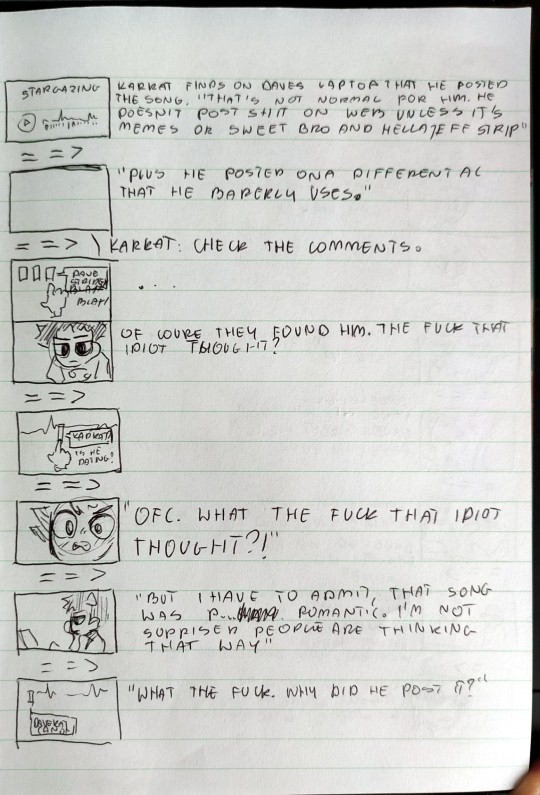 STARGAZING
KARKAT FINDS ON DAVES LAPTOP THAT HE POSTED
THE SONG. "THAT'S NOT NORMAL FOR HIM. HE
DOESN'T POST SHIT ON WEB UNLESS IT'S
MEMES OR SWEET BRO AND HELLA JEFF STRIP"
= = >
"PLUS HE POSTED ON A DIFFERENT AC
THAT HE BARERLY USES."
= = > \ KARKAT: CHECK THE COMMENTS.
DAVE
STRIDER
BLAH
BLAH
. . .
OF COURE THEY FOUND HIM. THE FUCK THAT
IDIOT THOUGHT?
= = >
KARKAT
IS HE
DATING?
= = >
"OFC. WHAT THE FUCK THAT IDIOT
THOUGHT?!"
= = >
"BUT I HAVE TO ADMIT, THAT SONG
WAS R... ROMANTIC. I'M NOT
SURPRISED PEOPLE ARE THINKING
THAT WAY"
= = >
"WHAT THE FUCK. WHY DID HE POST IT?"
DAVEKAT